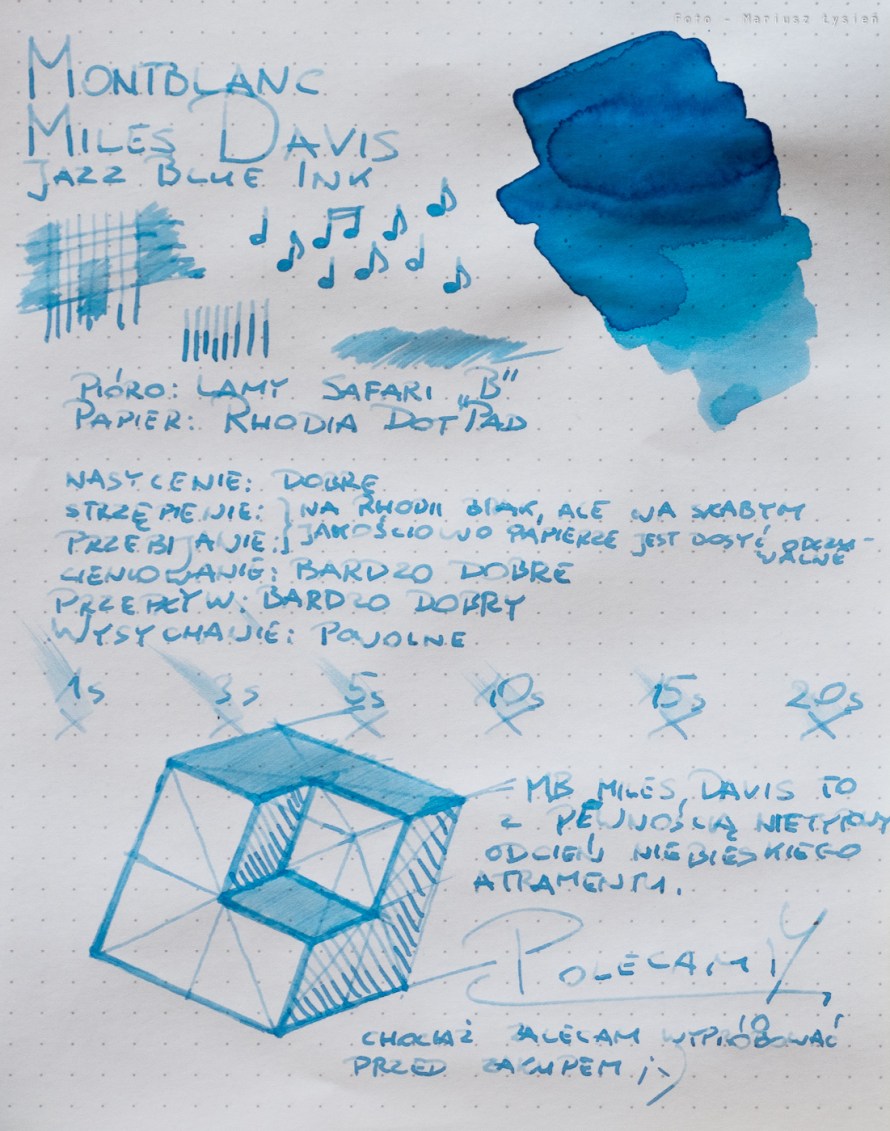 Foto - Mariusz Łysień
MONTBLANC
MILES DAVIS
JAZZ BLUE INK
PIÓRO: LAMY SAFARI „B”
PAPIER: RHODIA DOTPAD
NASYCENIE: DOBRE
STRZĘPIENIE: } NA RHODII BRAK, ALE NA SŁABYM
PRZEBIJANIE: } JAKOŚCIOWO PAPIERZE JEST DOSYĆ ODCZU-
WALNE
CIENIOWANIE: BARDZO DOBRE
PRZEPŁYW: BARDZO DOBRY
WYSYCHANIE: POWOLNE
1s 3s 5s 10s 15s 20s
MB MILES DAVIS TO
Z PEWNOŚCIĄ NIETYPOWY
ODCIEŃ NIEBIESKIEGO
ATRAMENTU.
POLECAMY
CHOCIAŻ ZALECAM WYPRÓBOWAĆ
PRZED ZAKUPEM ;-)